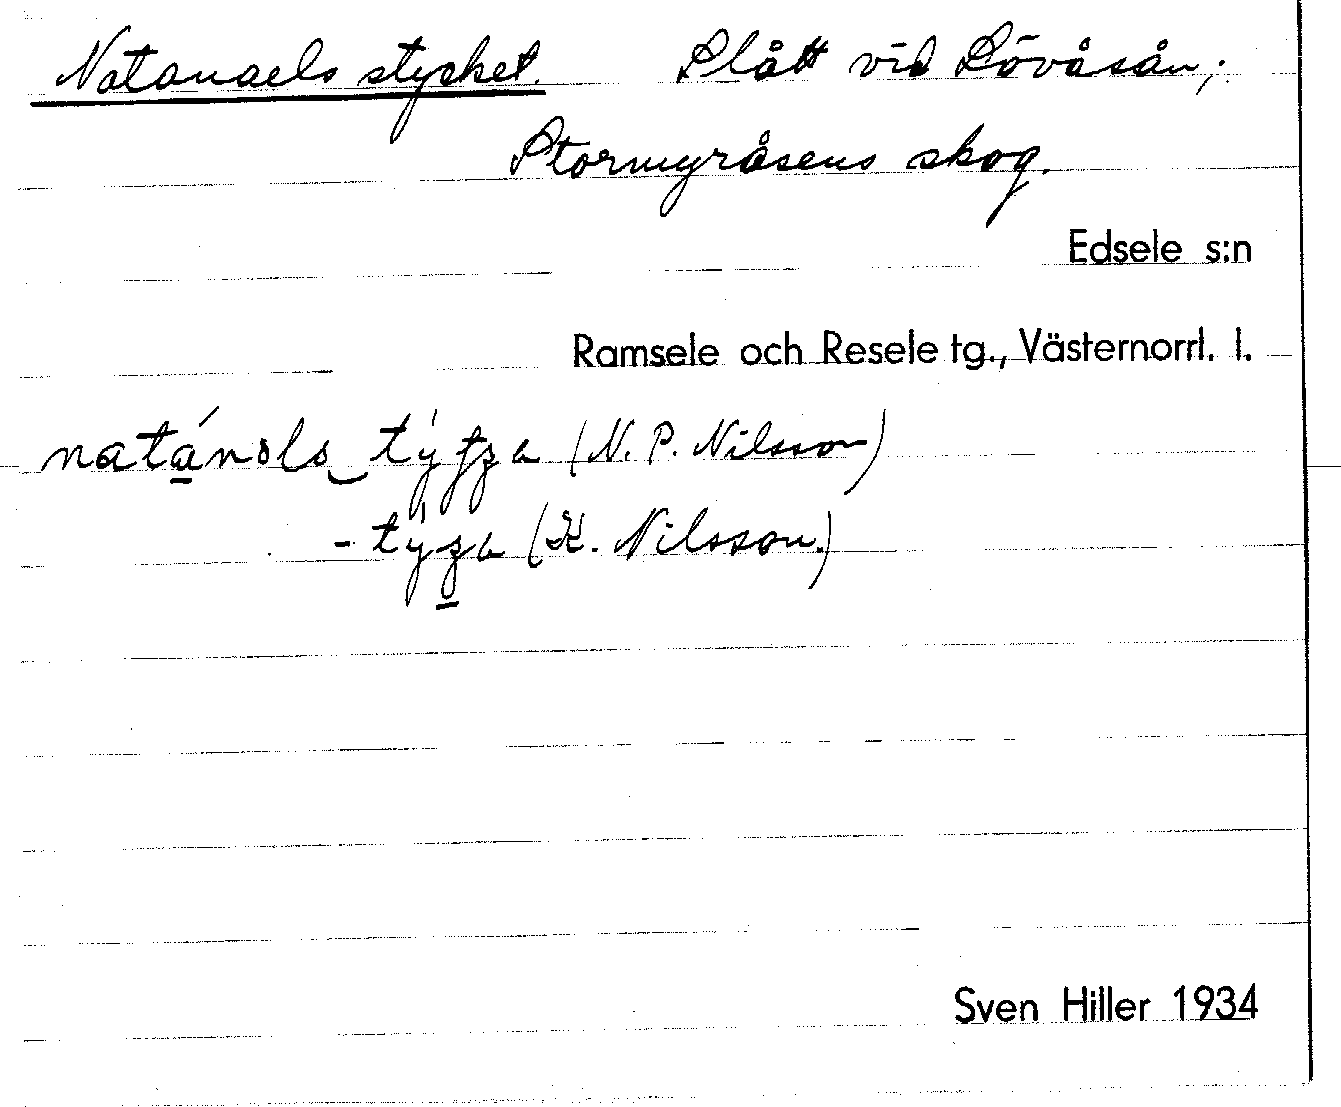 Natanaels stycket. Slått vid Lövåsån;
Stormyråsens skog.
Edsele s:n
Ramsele och Resele tg., Västernorrl. l.
(N. P. Nilsson)
(K. Nilsson.)
Sven Hiller 1934